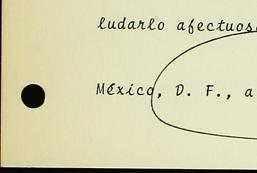 ludarlo afectuos
México, D. F., a